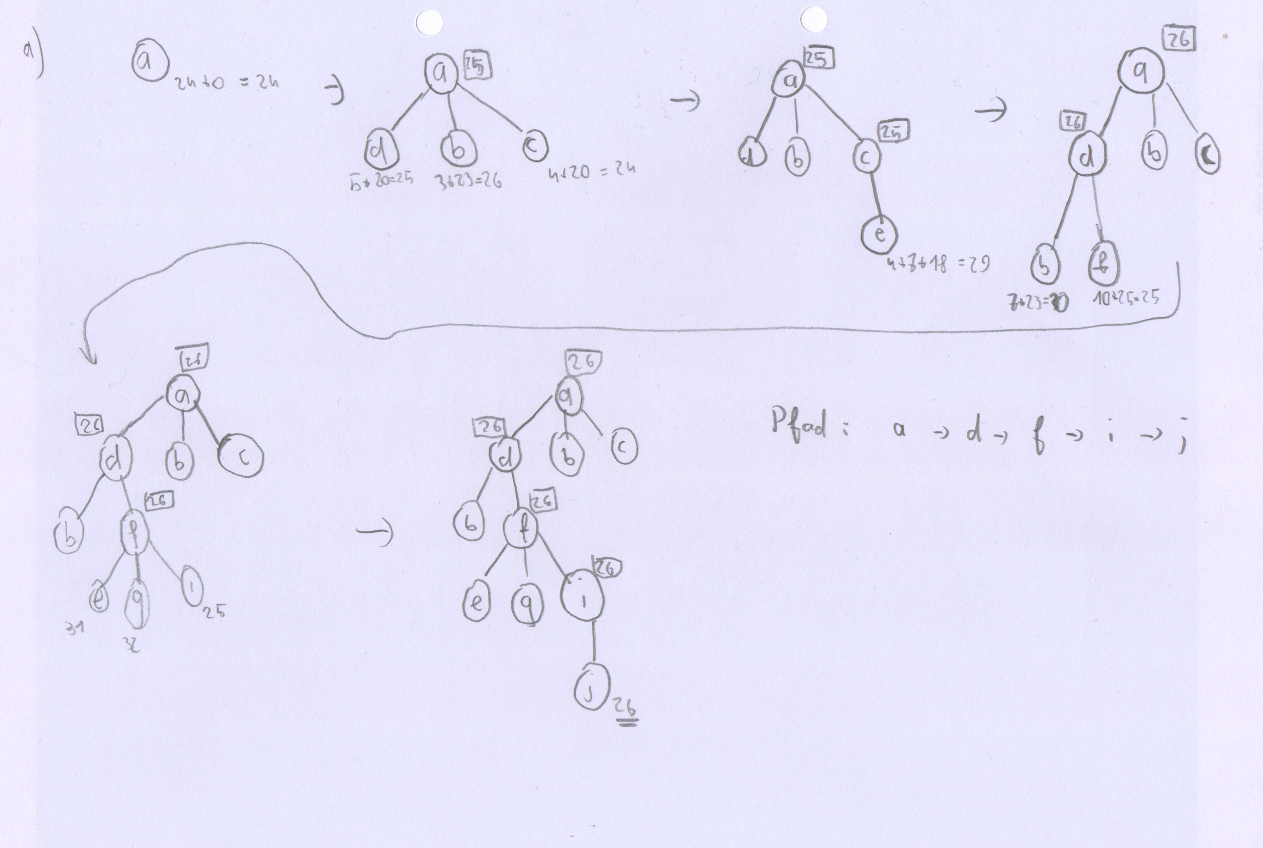 a)
a
24+0 = 24
→
a 25
d b c
5+20=25 3+23=26 4+20 = 24
→
a 25
d b c 25
e
4+7+18 = 29
→
a 26
26 d b c
b f
7+23=30
a
d b c
b f 26
e g i
31 32 25
→
a 26
26 d b c
b f 26
e g i 26
j
26
Pfad : a → d → f → i → j